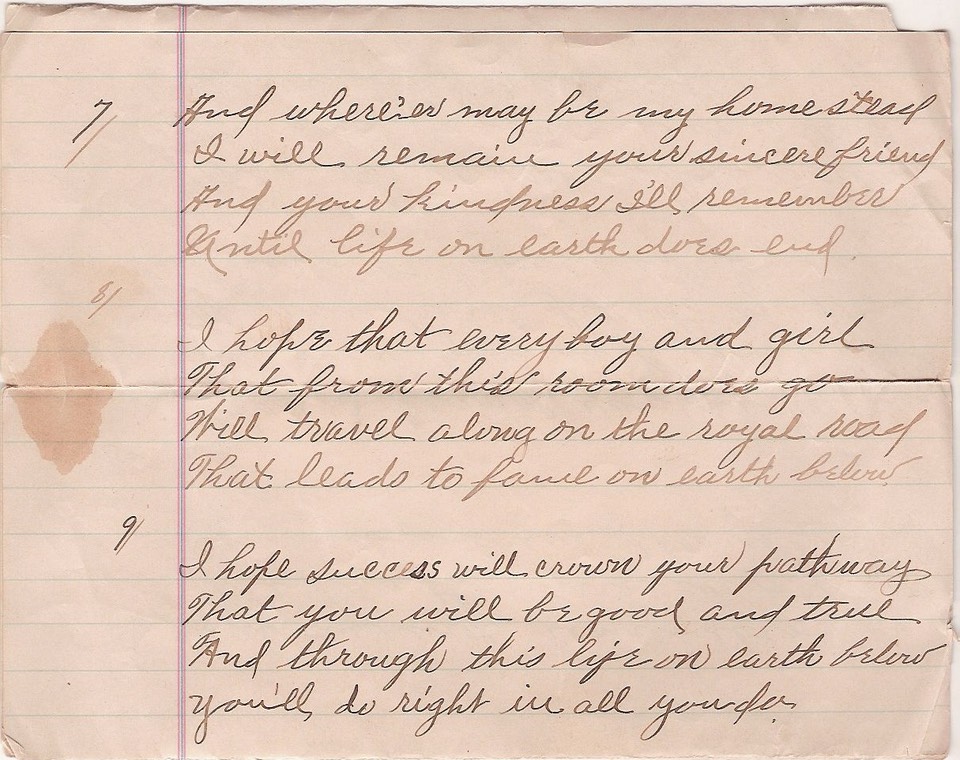 7/
And where'er may be my homestead
I will remain your sincere friend
And your kindness I'll remember
Until life on earth does end.
8/
I hope that every boy and girl
That from this room does go
Will travel along on the royal road
That leads to fame on earth below
9/
I hope success will crown your pathway
That you will be good and true
And through this life on earth below
You'll do right in all you do.